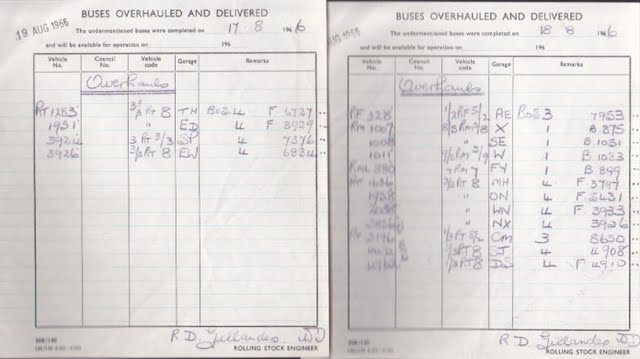 19 AUG 1966
BUSES OVERHAULED AND DELIVERED
The undermentioned buses were completed on 17 . 8 1966
and will be available for operation on 196
Vehicle No. Council No. Vehicle code Garage Remarks
Overhauls
RT 1283 3/3 RT 8 TH BOS 4 F. 6727
1951 " ED 4 F. 3929
3924 3 RT 3/3 SP 4 7576
3926 3/3 RT 8 EW 4 6834
R D Gillandes
ROLLING STOCK ENGINEER
AUG 1966
BUSES OVERHAULED AND DELIVERED
The undermentioned buses were completed on 18 8 1966
and will be available for operation on 196
Vehicle No. Council No. Vehicle code Garage Remarks
Overhauls
RF 328 1/2 RF 5/2 AE BOS 3 7953
RM 1007 X 1 B. 875
1008 " SE 1 B. 1051
1011 W 1 B. 1033
RML 880 RM 7 FY 1 B. 899
RT 1636 3/3 RT 8 MH 4 F. 3797
" ON 4 F. 5431
" WN 4 F. 3933
" NX 4 3926
CM 3 8650
RT 8 SJ 4 4908
1/3 RT 8 DS 4 F 4910
R D Gillandes
ROLLING STOCK ENGINEER